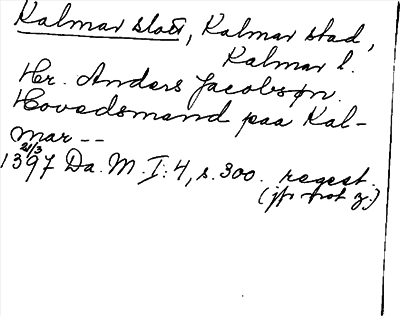 Kalmar slott, Kalmar stad,
Kalmar l.
Hr. Anders Jacobsøn.
Hovedsmand paa Kal-
mar --
21/3
1397 Da. M. I: 4, s. 300. regest.
(jfr not z.)